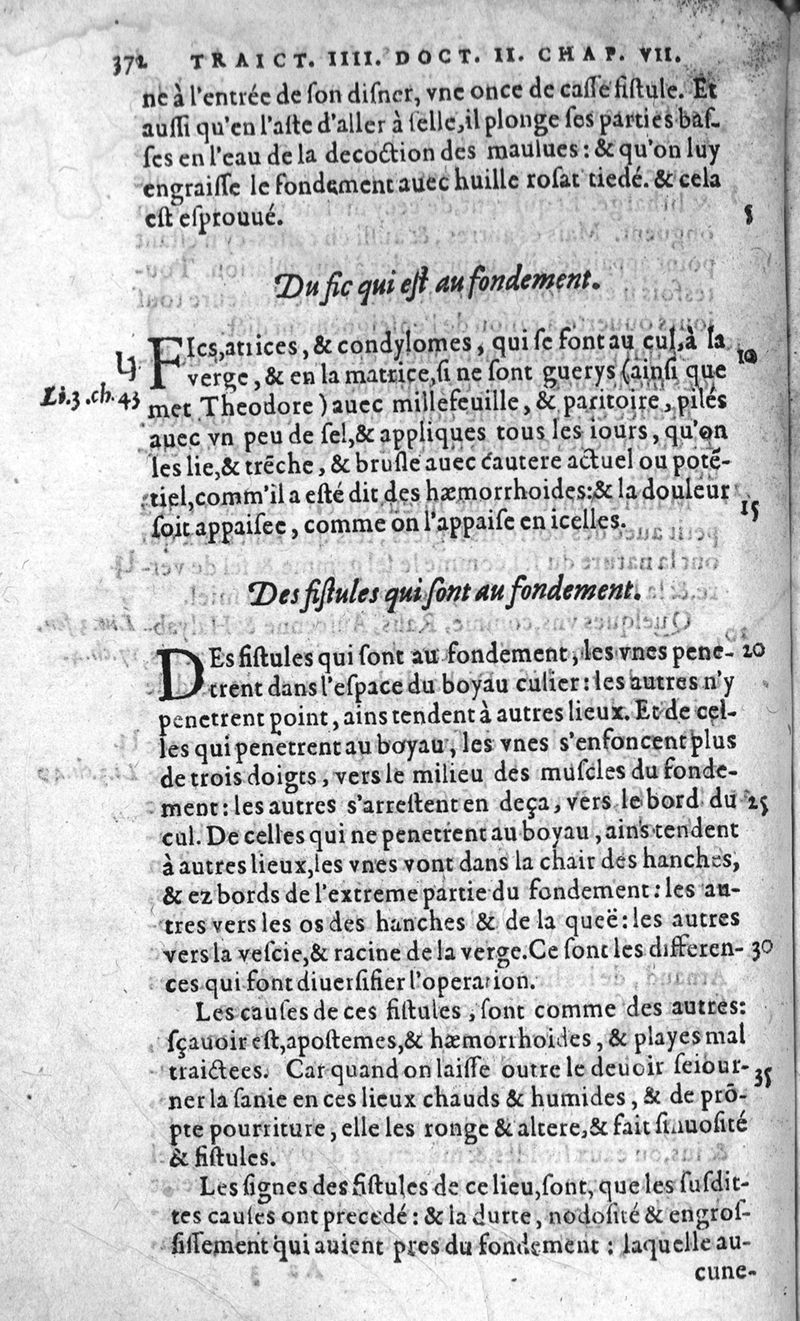 372 TRAICT. IIII. DOCT. II. CHAP. VII.
ne à l'entrée de ſon diſner, vne once de caſſe fiſtule. Et
auſſi qu'en l'aſte d'aller à ſelle, il plonge ſes parties baſ-
ſes en l'eau de la decoction des maulues : & qu'on luy
engraiſſe le fondement auec huille roſat tiede. & cela
eſt eſprouué. 5
Du fic qui eſt au fondement.
FIcs, atrices, & condylomes, qui ſe font au cul, à la 10
verge, & en la matrice, ſi ne ſont guerys (ainſi que
Li.3.ch.43 met Theodore) auec millefeuille, & paritoire, pilés
auec vn peu de ſel, & appliques tous les iours, qu'on
les lie, & trẽche, & bruſle auec cautere actuel ou potẽ-
tiel, comm'il a eſté dit des hæmorrhoides: & la douleur 15
ſoit appaiſee, comme on l'appaiſe en icelles.
Des fiſtules qui ſont au fondement.
DEs fiſtules qui ſont au fondement, les vnes pene- 20
trent dans l'eſpace du boyau culier : les autres n'y
penetrent point, ains tendent à autres lieux. Et de cel-
les qui penetrent au boyau, les vnes s'enfoncent plus
de trois doigts, vers le milieu des muſcles du fonde-
ment : les autres s'arreſtent en deça, vers le bord du 25
cul. De celles qui ne penetrent au boyau, ains tendent
à autres lieux, les vnes vont dans la chair des hanches,
& ez bords de l'extreme partie du fondement : les au-
tres vers les os des hanches & de la queë : les autres
vers la veſcie, & racine de la verge. Ce ſont les differen- 30
ces qui font diuerſifier l'operation.
Les cauſes de ces fiſtules, ſont comme des autres:
ſçauoir eſt, apoſtemes, & hæmorrhoides, & playes mal
traictees. Car quand on laiſſe outre le deuoir ſeiour- 35
ner la ſanie en ces lieux chauds & humides, & de prõ-
pte pourriture, elle les ronge & altere, & fait ſinuoſité
& fiſtules.
Les ſignes des fiſtules de ce lieu, ſont, que les ſuſdit-
tes cauſes ont precedé : & la durte, nodoſité & engroſ-
ſiſſement qui auient pres du fondement : laquelle au-
cune-